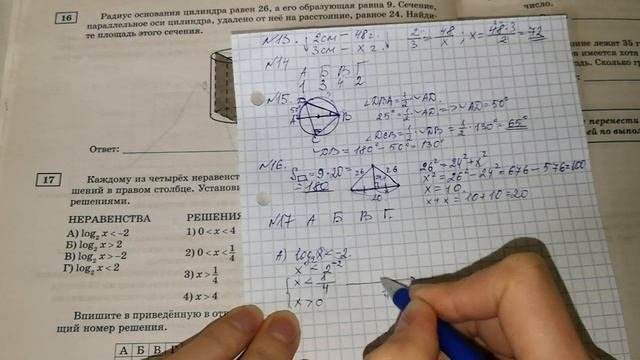 16
Радиус основания цилиндра равен 26, а его образующая равна 9. Сечение,
параллельное оси цилиндра, удалено от неё на расстояние, равное 24. Найди-
те площадь этого сечения.
Ответ:
17
Каждому из четырёх неравенст
шений в правом столбце. Установи
решениями.
НЕРАВЕНСТВА
РЕШЕНИЯ
А) log₂ x < −2
Б) log₂ x > 2
В) log₂ x > −2
Г) log₂ x < 2
1) 0 < x < 4
2) 0 < x < 1/4
3) x > 1/4
4) x > 4
Впишите в приведённую в отв
щий номер решения.
А Б В Г
число.
лежние 35 г
имеется хота
Сколько гр
перенести
ей по выполн
№13. 2см − 48г
3см − х г.
2/3 = 48/x; x = 48·3/2 = 72
№14
А Б В Г
1 3 4 2
№15.
∠DBA = 1/2 ◡AD.
25° = 1/2 ◡AD => ◡AD = 50°
∠DCB = 1/2 ◡DB = 1/2 · 130° = 65°
◡DB = 180° − 50° = 130°
№16.
S▭ = 9·20 =
= 180
26 26
24
20
26² = 24² + x²
x² = 26² − 24² = 676 − 576 = 100
x = 10
x + x = 10 + 10 = 20
№17 А Б В Г
А) log₂x < −2.
x < 2⁻²
x < 1/4
x > 0